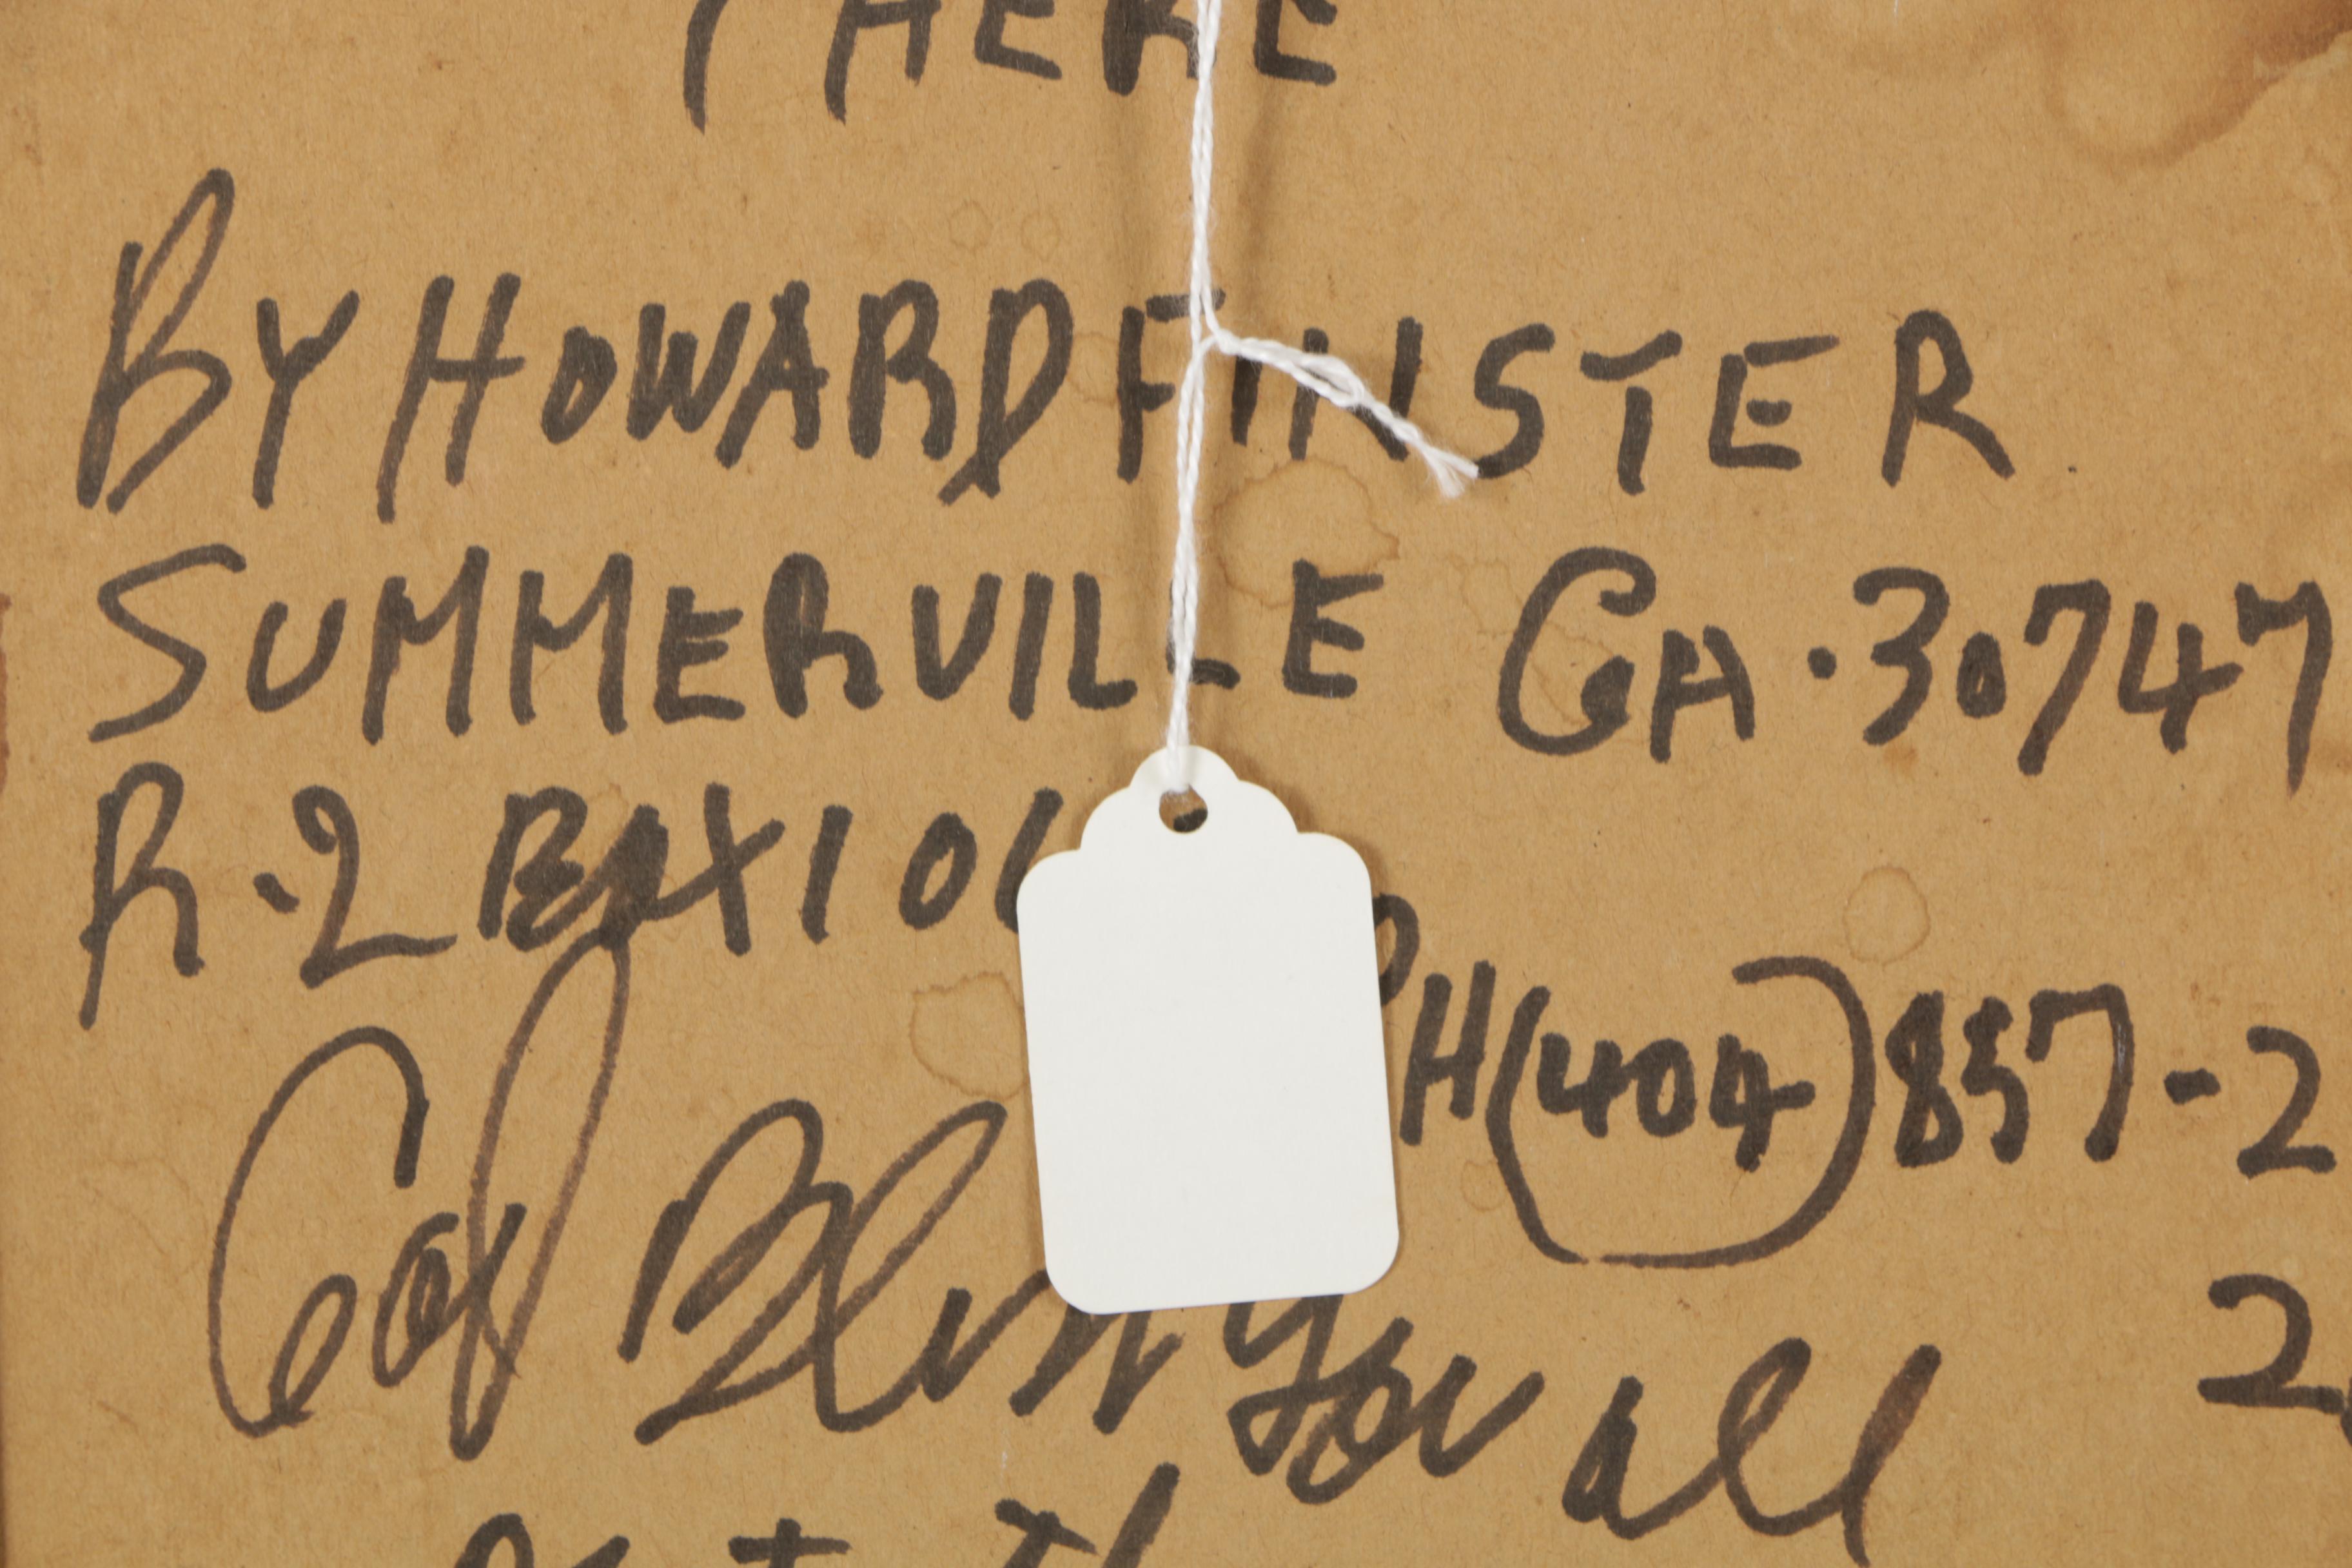 THERE
BY HOWARD FINSTER
SUMMERVILLE GA. 30747
R.2 BOX 106
PH (404) 857-2
God Bless You all
2